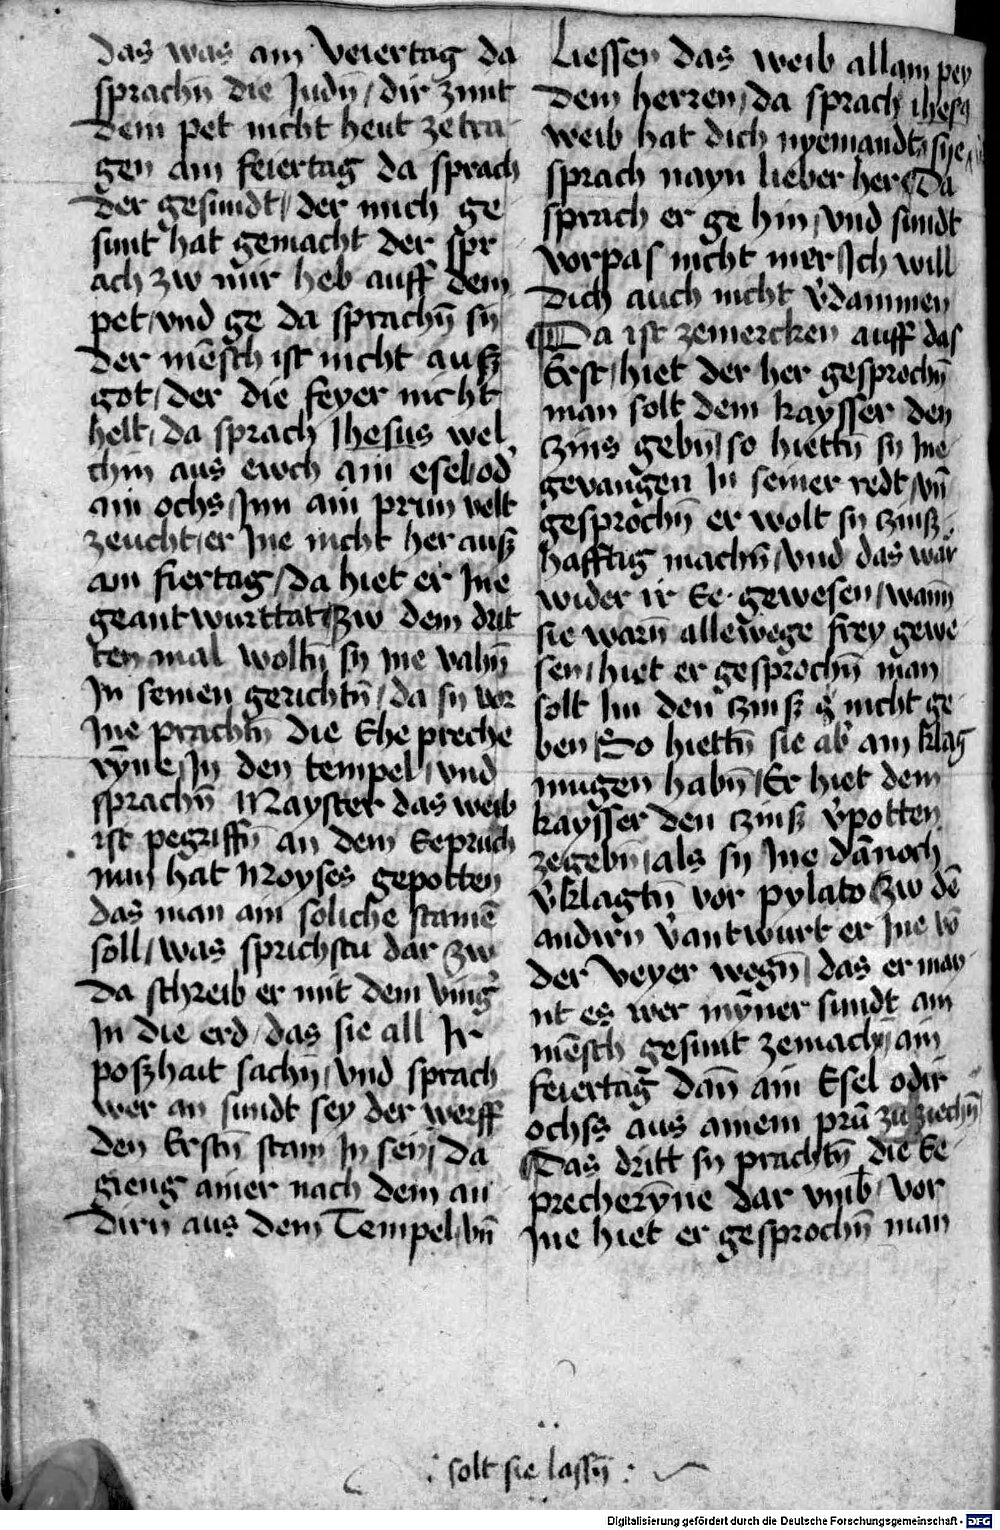 das was am Veiertag da
sprachn̄ die Judn̄ / dir zimt
dem pet nicht heut ze tra
gen am feiertag da sprach
der gesundt / der mich ge
sunt hat gemacht der spr
ach zw mir heb auff dem
pet / vnd ge da sprachn̄ sy
der mēsch ist nicht ausz
got / der die feyer nicht
helt / da sprach Jhesus wel
chm aus ewch ain esel / od
ain ochs / Inn ain prun velt
zeucht er Ine nicht her ausz
am fiertag / da hiet er Ine
geantwurttat zw dem drit
ten mal woltn̄ sy Ine vahn̄
In seinen gerichtn̄ / da sy vor
Ine prachtn̄ die Ehe preche
rȳne / In den tempel / vnd
sprachn̄ Mayster das weib
ist pegriffn̄ an dem Eepruch
nun hat Moyses gepotten
das man ain soliche stainē
soll / was sprichstu dar zw
da schreib er mit dem ving̉
In die erd / das sie all Ir
poszhait sachn̄ / vnd sprach
wer an sundt sey der werff
den Erstn̄ stain In sey / da
gieng ainer nach dem an
dirn aus dem Tempel / vn̄
Liessen das weib allain pey
dem herren / da sprach ihesq
weib hat dich nyemandt / sye
sprach nayn lieber her Da
sprach er ge hin / vnd sundt
vorpas nicht mer Ich will
dich auch nicht v̉dammen
Da ist zemercken auff das
Erst / hiet der her gesprochn̄
man solt dem kaysser den
czins gebn̄ / so hiettn̄ sy Ine
gevangen In seiner redt / vn̄
gesprochn̄ er wolt sy czinsz
hafftig machn̄ / vnd das war
wider ir Ee gewesen / wann̄
sie warn̄ allewege frey gewe
sen / hiet er gesprochn̄ man
solt Im den czinsz nicht ge
ben / So hiettn̄ sie ab̉ ain klag
mugen habn̄ / Er hiet dem
kaysser den czinsz v̉potten
zegebn̄ / als sy Ine dan̄noch
v̉klagtn̄ vor pylato Zw dē
andirn v̉antwurt er Ine vō
der veyer wegn̄ / das er may
nt es wer mȳner sundt ain
mēsch gesunt zemachn̄ ain
feiertag dan̄ ain Esel odir
ochss aus ainem prū zu ziechn̄
Das dritt sy prachtn̄ die Ee
precherȳne dar vmb / vor
Ine hiet er gesprochn̄ man
: solt sie lassn̄ :
Digitalisierung gefördert durch die Deutsche Forschungsgemeinschaft - DFG